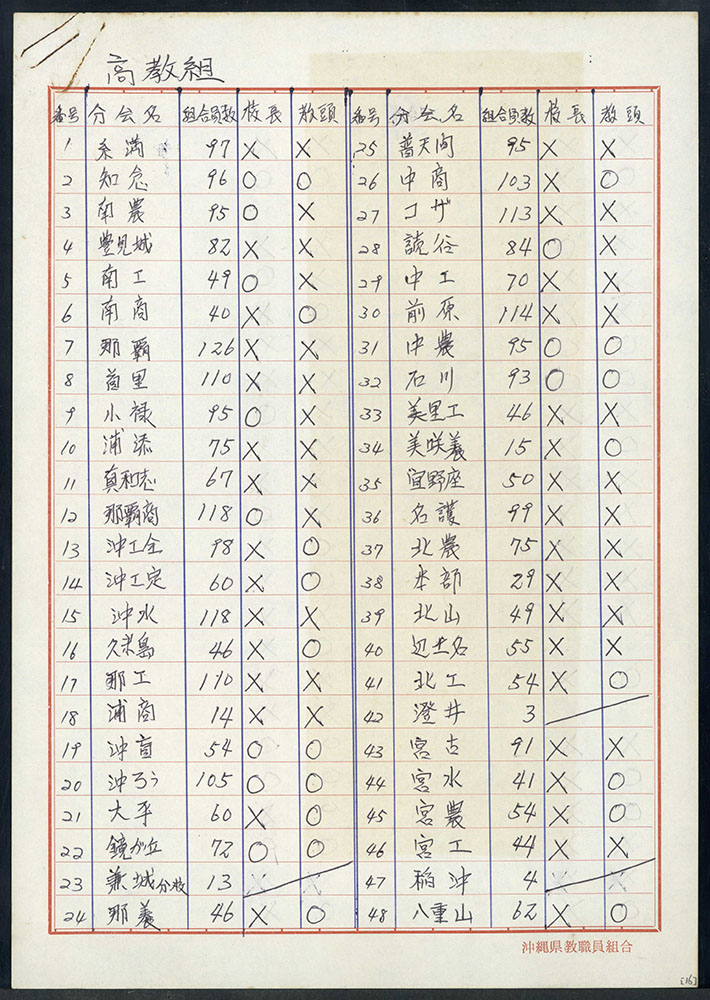 高教組
番号 分会名 組合員数 校長 教頭
1 糸満 97 X X
2 知念 96 O O
3 南農 95 O X
4 豊見城 82 X X
5 南工 49 O X
6 南商 40 X O
7 那覇 126 X X
8 首里 110 X X
9 小禄 95 O X
10 浦添 75 X X
11 真和志 67 X X
12 那覇商 118 O X
13 沖工全 98 X O
14 沖工定 60 X O
15 沖水 118 X X
16 久米島 46 X O
17 那工 110 X X
18 浦商 14 X X
19 沖盲 54 O O
20 沖ろう 105 O O
21 大平 60 X O
22 鏡が丘 72 O O
23 兼城分校 13
24 那養 46 X O
番号 分会名 組合員数 校長 教頭
25 普天间 95 X X
26 中商 103 X O
27 コザ 113 X X
28 読谷 84 O X
29 中工 70 X X
30 前原 114 X X
31 中農 95 O O
32 石川 93 O O
33 美里工 46 X X
34 美咲養 15 X O
35 宜野座 50 X X
36 名護 99 X X
37 北農 75 X X
38 本部 29 X X
39 北山 49 X X
40 辺土名 55 X X
41 北工 54 X O
42 澄井 3
43 宮古 91 X X
44 宮水 41 X O
45 宮農 54 X O
46 宮工 44 X X
47 稲沖 4
48 八重山 62 X O
沖縄県教職員組合
[16]